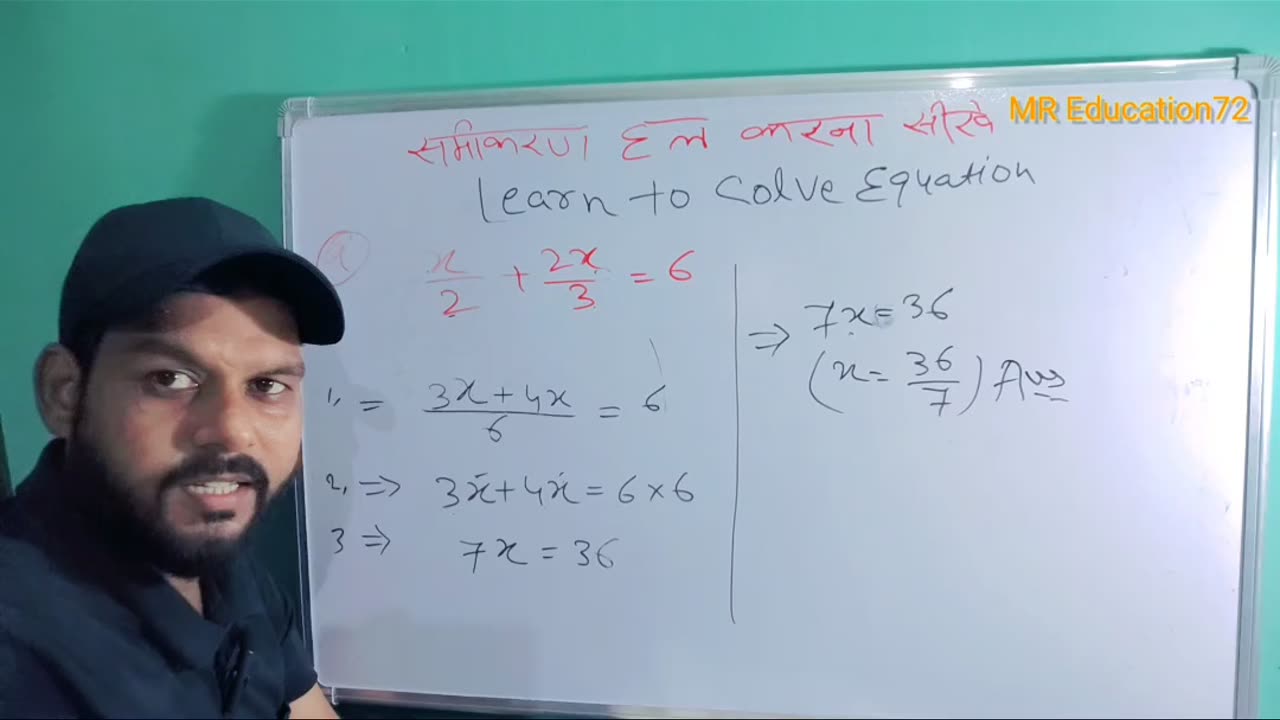 MR Education72
समीकरण हल करना सीखे
Learn to Solve Equation
Q x/2 + 2x/3 = 6
1, = 3x+4x/6 = 6
2, ⇒ 3x+4x = 6×6
3 ⇒ 7x = 36
⇒ 7x = 36
(x = 36/7) Ans